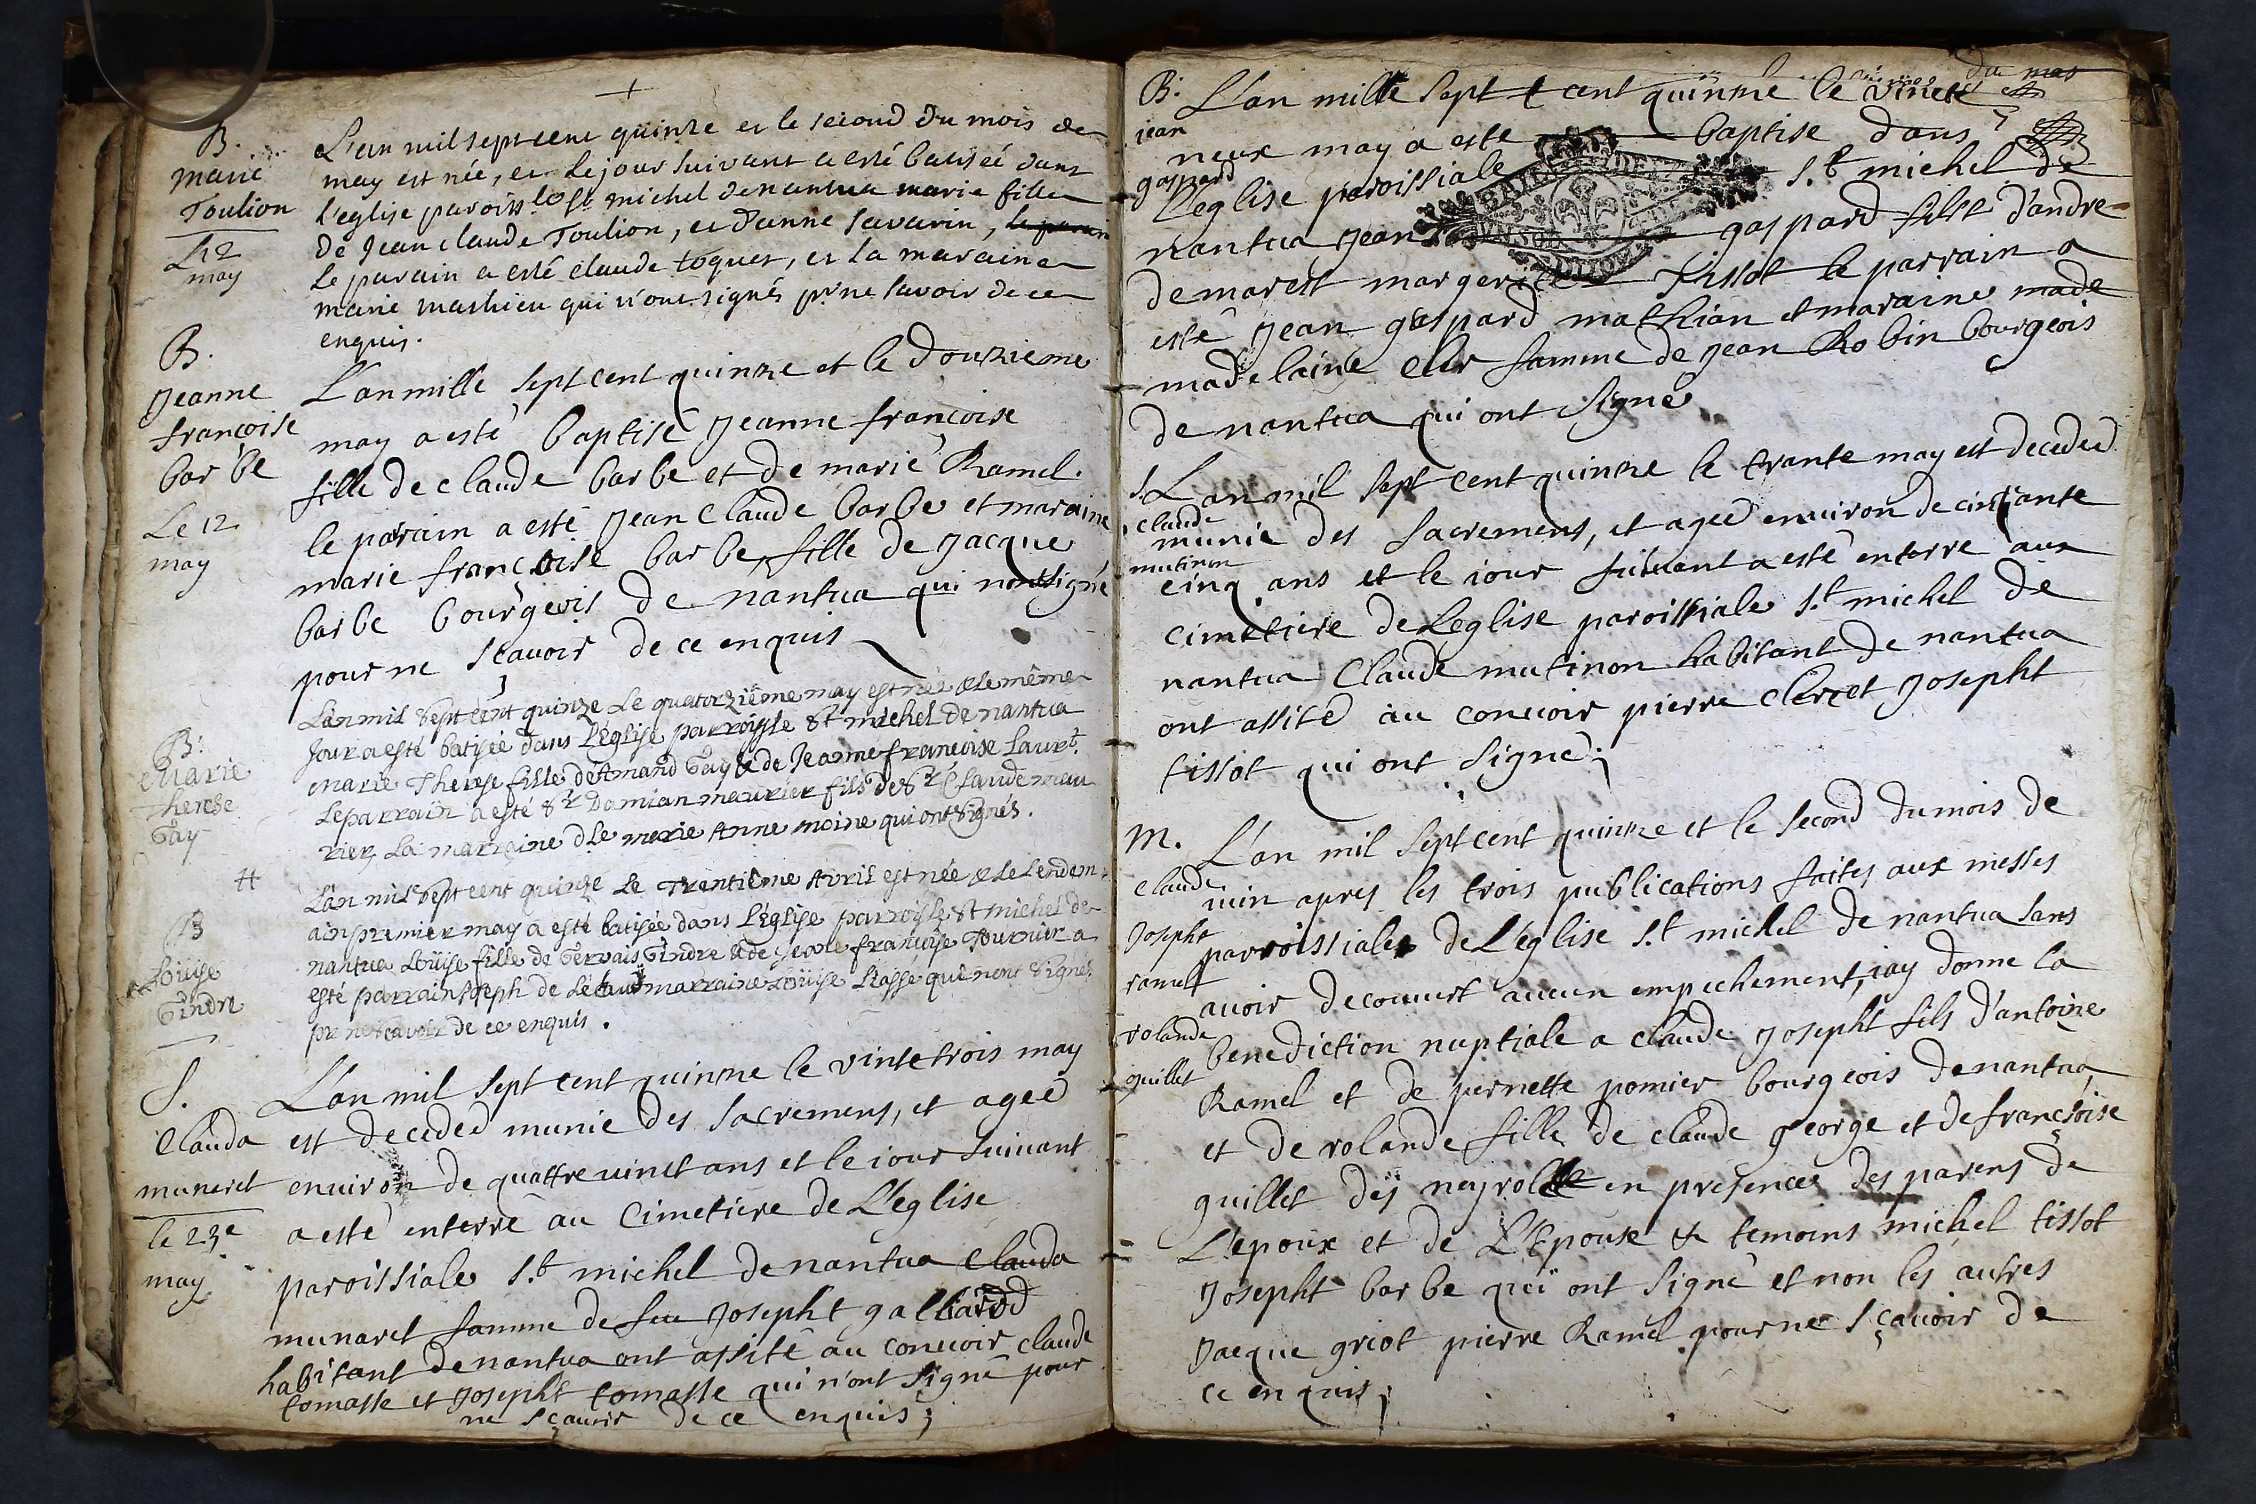 +
B.
marie
Toulion
Le 2
may
L'an mil sept cent quinze et le second du mois de
may est née, et le jour suivant a esté batiseé dans
l'eglise paroiss.le St michel de nantua marie fille
de Jean claude Toulion, et d'anne savarin, le parain
Le parain a esté claude toquet, et la maraine
marie mathieu qui n'ont signés pr ne savoir de ce
enquis.
B.
Jeanne
françoise
barbe
Le 12
may
L'an mille sept cent quinze et le douzieme
may a esté baptisé Jeanne françoise
fille de claude barbe et de marie Ramel.
le parain a esté Jean claude barbe et maraine
marie françoise barbe fille de Jacque
barbe bourgeois de nantua qui nont signé
pour ne sçavoir de ce enquis
B.
Marie
therese
Gay
L'an mil sept cent quinze Le quatorziême may est née & le même
Jour a esté batisée dans L'Eglise parroissle St michel de nantua
Marie Therese fille d'Amand Gay & de Jeanne françoise Laurt.
Le parrain a esté Sr Damian maurier fils de Sr Claude mau
rier, La marraine dLe marie Anne moine qui ont signés.
#
B
Loüise
Gindre
L'an mil sept cent quinze Le trentiême Avril est née & Le Lendem
ain premier may a esté batisée dans L'Eglise parroissle St michel de
nantua Loüise fille de Gervais Gindre & de françoise Tournier a
esté parrain Joseph de marraine Loüise qui nont signés
pr ne sçavoir de ce enquis.
S.
Clauda
muneret
le 23e
may
L'an mil sept cent quinze le vinte trois may
est decedeé munie des sacremens, et ageé
environ de quattre vinct ans et le iour suivant
a esté enterré au Cimetiere de L'eglise
paroissiale S.t michel de nantua clauda
munaret famme de feu Josepht galliard
habitant de nantua ont assité au convoir claude
tomasse et Josepht tomasse qui n'ont signé pour
ne sçavoir de ce enquis;
du mas
B.
jean
gaspard
L'an mille sept cent quinze le vinete
neux may a este baptise dans
L'eglise paroissiale S.t michel de
nantua Jean gaspard filst d'andre
demarest margerite tissot le parrain a
esté Jean gaspard mathian et maraine made
madelaine cler famme de Jean Robin bourgeois
de nantua qui ont signé
S.
claude
mutinon
L'an mil sept cent quinze le trante may est decedeé
munie des sacremens, et ageé environ de cinqante
cinq ans et le iour suivant a esté enterre aux
cimetiere de L'eglise paroissiale S.t michel de
nantua Claude mutinon habitant de nantua
ont assité au convoir pierre cler et Josepht
tissot qui ont signé;
M.
claude
Josepht
ramel
rolande
guillet
L'an mil sept cent quinze et le second du mois de
iuin apres les trois publications faites aux messes
parroissiales de L'église S.t michel de nantua sans
avoir decouvert aucun empechement, iay donne la
benediction nuptiale a claude Josepht fils d'antoine
Ramel et de pernette pomier bourgeois de nantua,
et de rolande fille de claude george et de françoise
guillet deÿ neyrolle en presence des parens de
L'epoux et de L'Epouse & temoins michel tissot
Josepht barbe qui ont signé et non les autres
Jacque griot pierre Ramel pour ne sçavoir de
ce enquis;